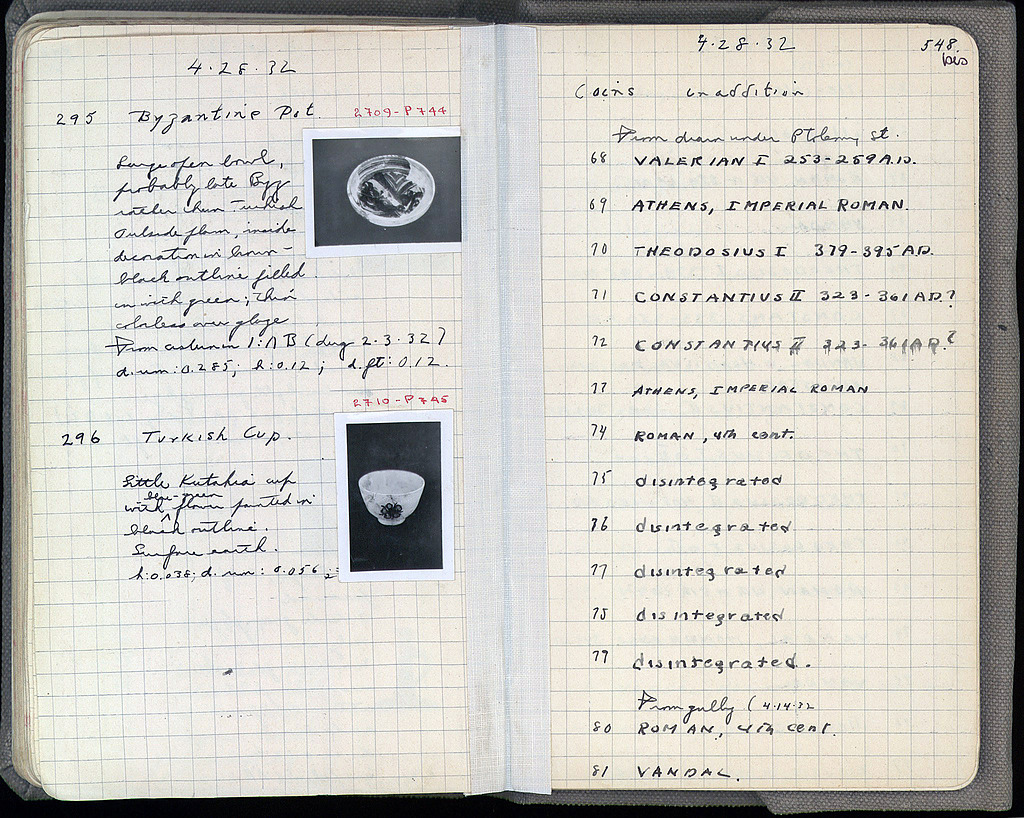 4·28·32
295 Byzantine Pot. 2709-P744
Large open bowl,
probably late Byz
rather than Turkish
outside plain, inside
decoration in brown-
black outline filled
in with green; thin
colorless over glaze
From cistern in 1:ΛB (dug 2·3·32)
d.um:0.285; h:0.12; d.ft:0.12.
2710-P745
296 Turkish Cup.
Little Kutahia cup
blue-green
with flower painted in
black outline.
Surface earth.
h:0.038; d. um: 0.056
4·28·32 548
bis
Coins in addition
From drain under Ptolemy St.
68 VALERIAN I 253-259 A.D.
69 ATHENS, IMPERIAL ROMAN.
70 THEODOSIUS I 379-395 AD.
71 CONSTANTIUS II 323-361 AD?
72 CONSTANTIUS II 323-361 AD?
73 ATHENS, IMPERIAL ROMAN
74 ROMAN, 4th cent.
75 disintegrated
76 disintegrated
77 disintegrated
78 disintegrated
79 disintegrated.
From gully (4·14·32
80 ROMAN, 4th cent.
81 VANDAL.